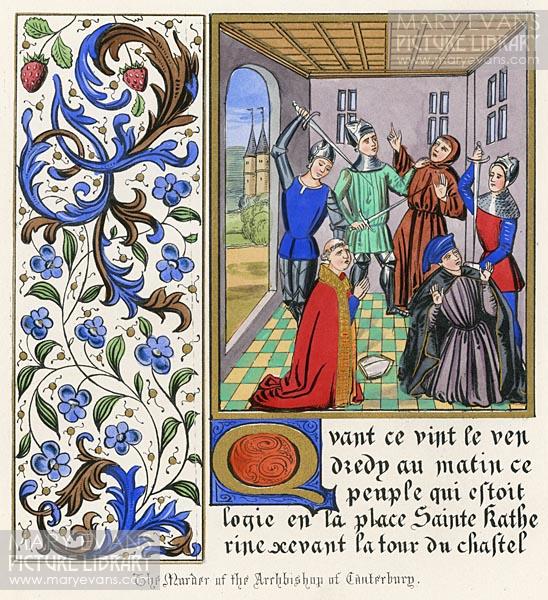 MARY EVANS
PICTURE LIBRARY
www.maryevans.com
Qvant ce vint le ven
dredy au matin ce
peuple qui estoit
logie en la place Sainte Kathe
rine devant la tour du chastel
MARY EVANS
PICTURE LIBRARY
www.maryevans.com
The Murder of the Archbishop of Canterbury.